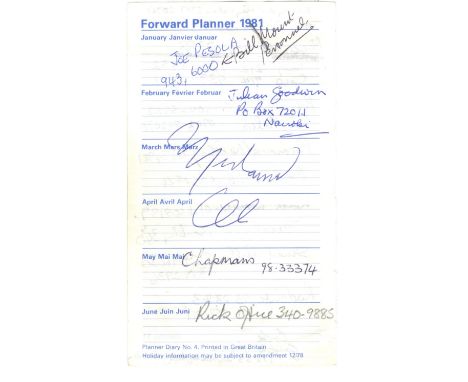 Forward Planner 1981
January Janvier Januar
JOE PESOLA
943, 6000
Bill Mount
Personnel
February Février Februar
Julian Goodwin
Po Box 72011
Nairobi
March Mars März
Muhammad
Ali
April Avril April
May Mai Mai
Chapmans
98-33374
June Juin Juni
Rick 340-9885
Planner Diary No. 4, Printed in Great Britain
Holiday information may be subject to amendment 12/78